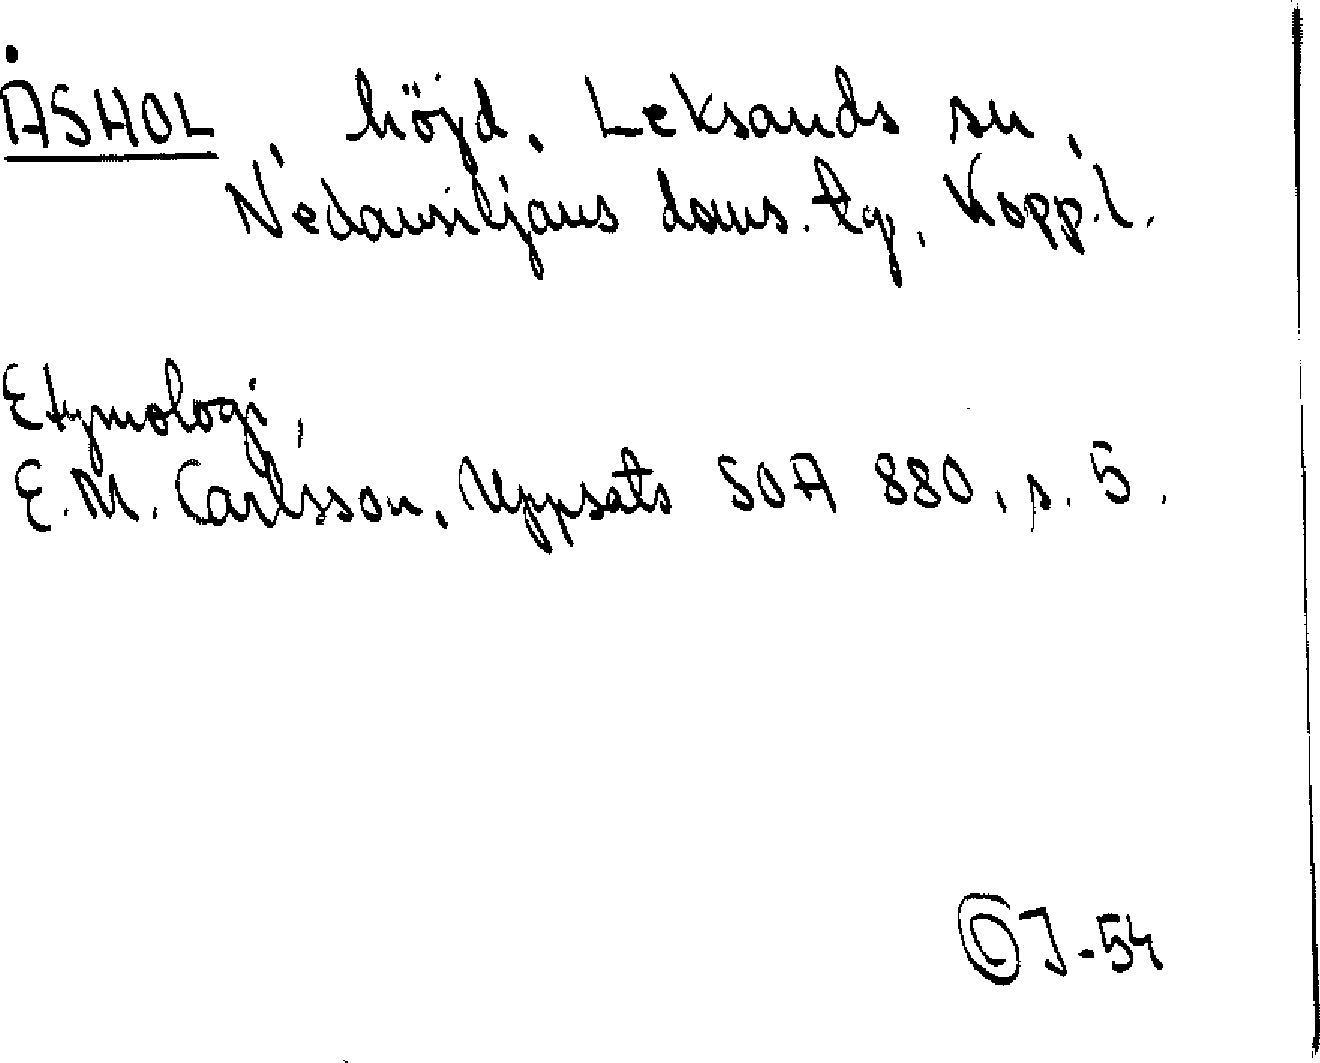 ÅSHOL, höjd, Leksands sn,
Nedansiljans doms. tg, Kopp.l.
Etymologi,
E.M. Carlsson, Uppsats SOA 880, s. 5.
J-54